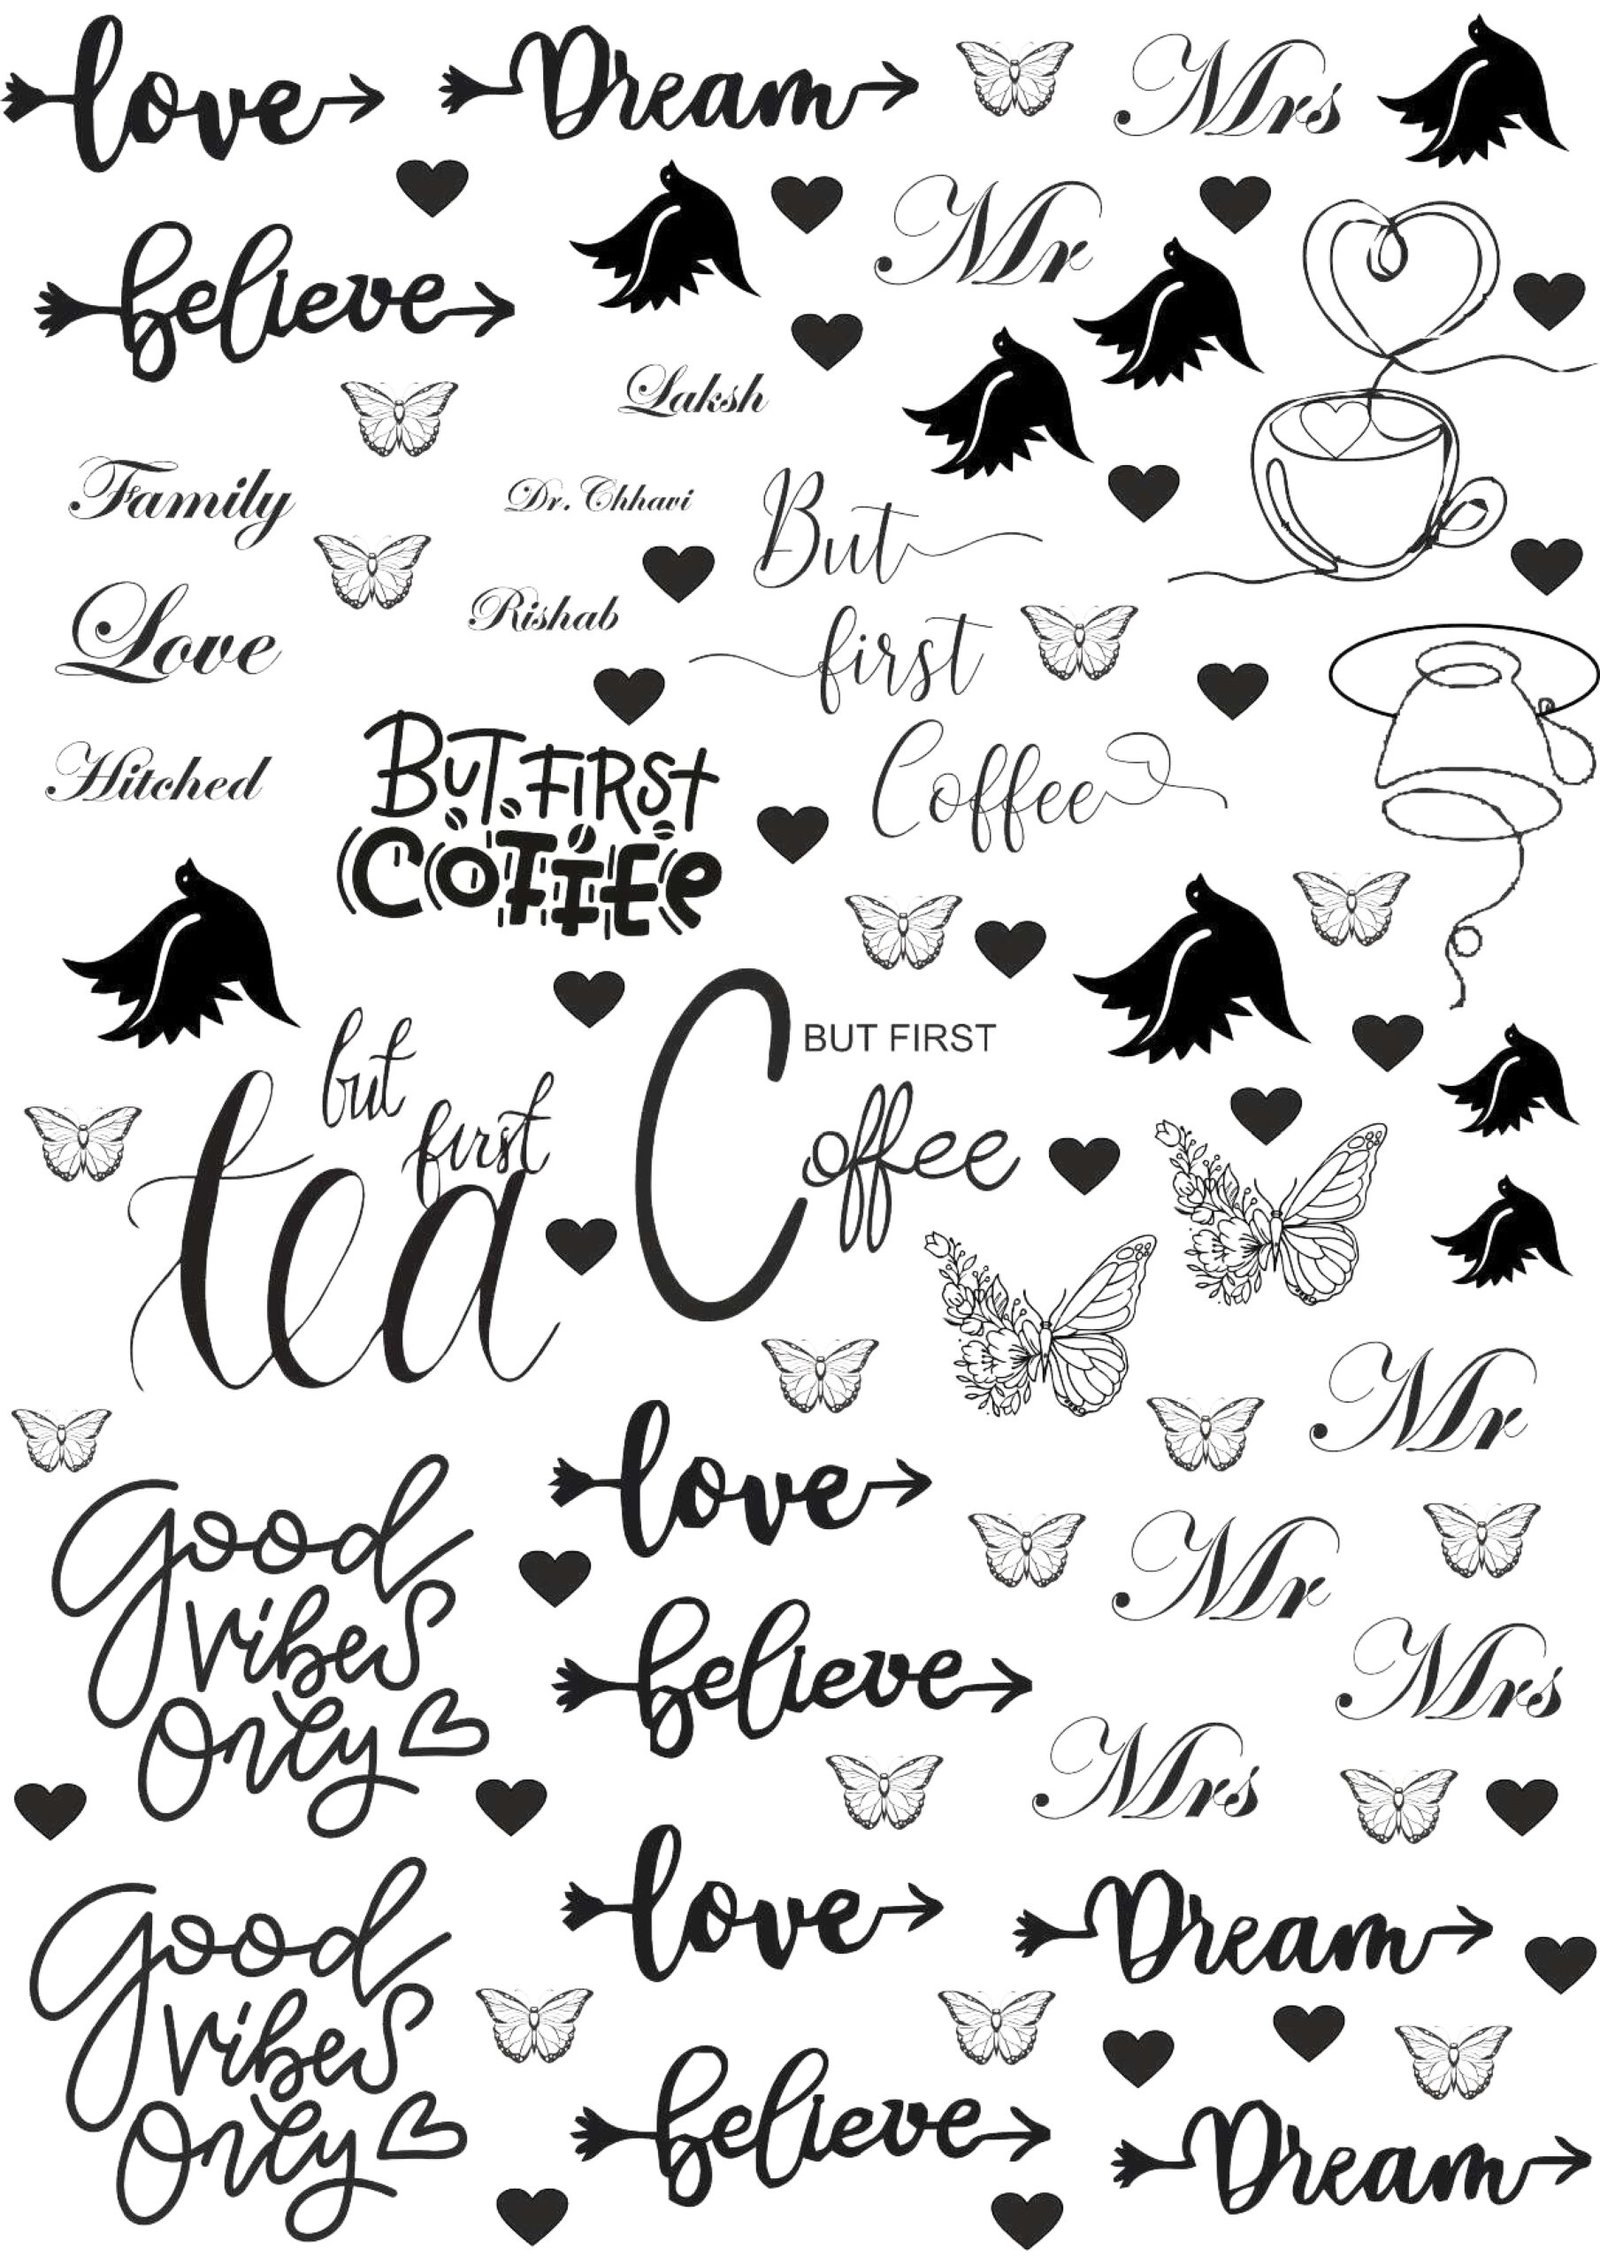 love
Dream
Mrs
Mr
believe
Laksh
Family
Dr. Chhavi
But
first
Coffee
Love
Rishab
Hitched
BuT FiRSt
CoffEe
but
first
tea
BUT FIRST
Coffee
Mr
love
Good
vibes
Only
Mr
believe
Mrs
Mrs
love
Dream
Good
vibes
Only
believe
Dream